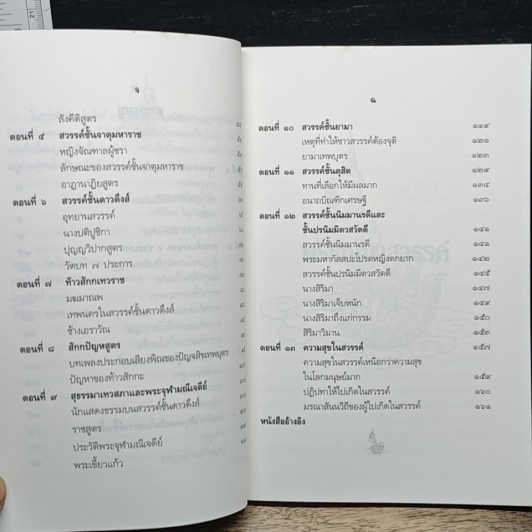 สังคีติสูตร
ตอนที่ ๕ สวรรค์ชั้นจาตุมหาราช
หญิงจัณฑาลผู้ชรา
ลักษณะของสวรรค์ชั้นจาตุมหาราช
อาฏานาฏิยสูตร
ตอนที่ ๖ สวรรค์ชั้นดาวดึงส์
อุทยานสวรรค์
นางปติปูชิกา
ปุญญวิปากสูตร
วัตบท ๗ ประการ
ตอนที่ ๗ ท้าวสักกเทวราช
มฆมาณพ
เทพนครในสวรรค์ชั้นดาวดึงส์
ช้างเอราวัณ
ตอนที่ ๘ สักกปัญหสูตร
บทเพลงประกอบเสียงพิณของปัญจสิขเทพบุตร
ปัญหาของท้าวสักกะ
ตอนที่ ๙ สุธรรมาเทวสภาและพระจุฬามณีเจดีย์
นักแสดงธรรมบนสวรรค์ชั้นดาวดึงส์
ราชสูตร
ประวัติพระจุฬามณีเจดีย์
พระเขี้ยวแก้ว
ตอนที่ ๑๐ สวรรค์ชั้นยามา ๑๑๙
เหตุที่ทำให้ชาวสวรรค์ต้องจุติ ๑๒๑
ยามาเทพบุตร ๑๒๓
ตอนที่ ๑๑ สวรรค์ชั้นดุสิต ๑๒๙
ทานที่เลือกให้มีผลมาก ๑๓๔
อนาถบิณฑิกเศรษฐี ๑๓๖
ตอนที่ ๑๒ สวรรค์ชั้นนิมมานรดีและ
ชั้นปรนิมมิตวสวัตดี ๑๔๑
สวรรค์ชั้นนิมมานรดี ๑๔๑
พระมหากัสสปะโปรดหญิงตกยาก ๑๔๒
สวรรค์ชั้นปรนิมมิตวสวัตดี ๑๔๕
นางสิริมา ๑๔๗
นางสิริมาเจ็บหนัก ๑๔๙
นางสิริมาถึงแก่กรรม ๑๕๐
สิริมาวิมาน ๑๕๓
ตอนที่ ๑๓ ความสุขในสวรรค์ ๑๕๗
ความสุขในสวรรค์เหนือกว่าความสุข
ในโลกมนุษย์มาก ๑๕๙
ปฏิปทาให้ไปเกิดในสวรรค์ ๑๖๐
มรณาสันนวิถีของผู้ไปเกิดในสวรรค์ ๑๖๑
หนังสืออ้างอิง